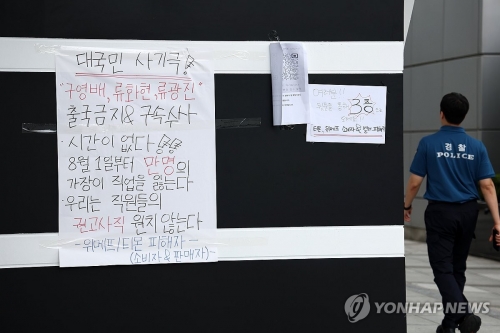 대국민 사기극!
"구영배, 류화현, 류광진"
출국금지 & 구속수사
· 시간이 없다
8월 1일부터 만명의
가장이 직업을 잃는다
· 우리는 직원들의
권고사직 원치 않는다
- 위메프/티몬 피해자 -
(소비자 & 판매자)
3층
티몬, 위메프 (소비자 & 판매자) 피해자
경찰
POLICE
YONHAPNEWS